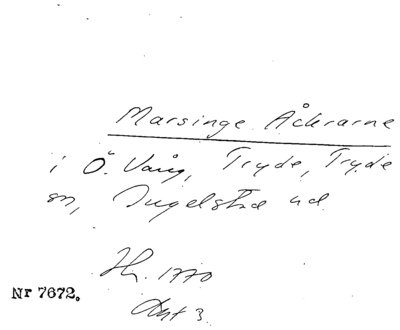 Marsinge Åckrarne
i Ö. Vång, Tryde, Tryde
sn, Ingelstad hd
Hr. 1770
Akt 3.
Nr 7672.